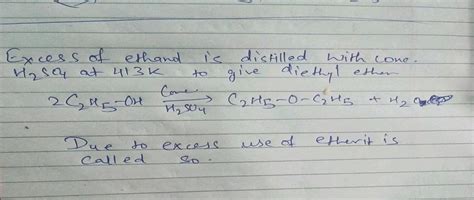 Excess of ethanol is distilled with conc.
H2SO4 at 413K to give diethyl ether
2C2H5-OH Conc. H2SO4 → C2H5-O-C2H5 + H2O
Due to excess use of ether it is
called so.